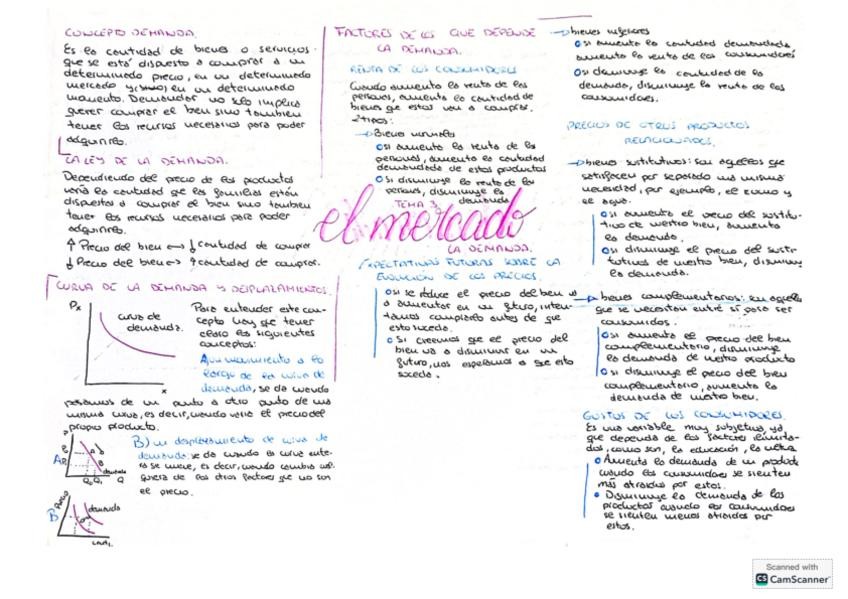 CONCEPTO DEMANDA.
Es la cantidad de bienes o servicios
que se está dispuesto a comprar a un
determinado precio, en un determinado
mercado y en un determinado
momento. Demandar no solo implica
querer comprar el bien sino tambien
tener los recursos necesarios para poder
adquirirlo.
LA LEY DE LA DEMANDA.
Dependiendo del precio de los productos
varia la cantidad que las familias están
dispuestos a comprar el bien sino tambien
tener los recursos necesarios para poder
adquirirlo.
↑ Precio del bien ↔ ↓ cantidad de compra
↓ Precio del bien ↔ ↑ cantidad de compra.
CURVA DE LA DEMANDA Y DESPLAZAMIENTOS.
Px
curva de
demanda.
x
Para entender este con-
cepto hay que tener
claro los siguientes
conceptos:
A) un movimiento a lo
largo de la curva de
demanda, se da cuando
pasamos de un punto a otro punto de una
misma curva, es decir, cuando varia el precio del
propio producto.
A
demanda
Q
B) un desplazamiento de curva de
demanda: se da cuando la curva ente-
ra se mueve, es decir, cuando cambia cual-
quiera de los otros factores que no son
el precio.
B
Precio
demanda
cant.
FACTORES DE LOS QUE DEPENDE
LA DEMANDA.
RENTA DE LOS CONSUMIDORES
Cuando aumenta la renta de las
personas, aumenta la cantidad de
bienes que estas van a comprar.
2 tipos:
→ Bienes normales
Si aumenta la renta de las
personas, aumenta la cantidad
demandada de estos productos
Si disminuye la renta de las
personas, disminuye la
demanda
TEMA 3
el mercado
LA DEMANDA.
EXPECTATIVAS FUTURAS SOBRE LA
EVOLUCIÓN DE LOS PRECIOS.
Si se reduce el precio del bien va
a aumentar en un futuro, inten-
tamos comprarlo antes de que
esto suceda.
Si creemos que el precio del
bien va a disminuir en un
futuro, nos esperamos a que esto
suceda.
→ bienes inferiores
Si aumenta la cantidad demandada
aumenta la renta de los consumidores
Si disminuye la cantidad de la
demanda, disminuye la renta de los
consumidores.
PRECIOS DE OTROS PRODUCTOS
RELACIONADOS.
→ bienes sustitutivos: son aquellos que
satisfacen por separado una misma
necesidad, por ejemplo, el zumo y
el agua.
Si aumenta el precio del sustitu-
tivo de nuestro bien, aumenta
la demanda.
Si disminuye el precio del susti-
tutivos de nuestro bien, disminuye
la demanda.
→ bienes complementarios: son aquellos
que se necesitan entre si para ser
consumidos.
Si aumenta el precio del bien
complementario, disminuye
la demanda de nuestro producto
Si disminuye el precio del bien
complementario, aumenta la
demanda de nuestro bien.
GUSTOS DE LOS CONSUMIDORES.
Es una variable muy subjetiva, ya
que depende de los factores ilimita-
dos, como son, la educación, la cultura
Aumenta la demanda de un producto
cuando los consumidores se sienten
más atraidos por estos.
Disminuye la demanda de los
productos cuando los consumidores
se sienten menos atraidos por
estos.
Scanned with
CS CamScanner